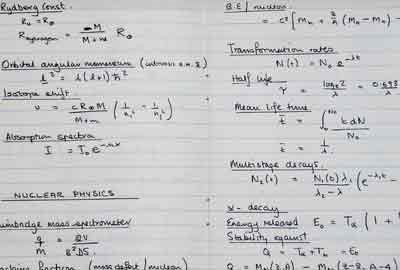 Rydberg Const.
R₀ = R∞
R_Hydrogen = M / (M + m) R∞
Orbital angular momentum
l² = l(l+1)ħ²
Isotope shift.
ν = cR∞M / (M+m) (1/n₁² - 1/n₂²)
Absorption spectra
I = I₀e^-nαx
NUCLEAR PHYSICS
Bainbridge mass spectrometer
q/m =
fraction (mass defect/nucleon)
B.E/nucleon
= c² [Mₙ + Z/A (M_H - Mₙ) -
Transformation rates
N(t) = N₀e^-λt
Half life
τ = logₑ2 / λ = 0.693
Mean life time
t̄ = ∫₀^N₀ t dN / N₀
t̄ = 1/λ
Multistage decays.
N₂(t) = N₁(0)λ₁ / (λ₂ - λ) (e^-λ₁t -
α-decay
Energy released E₀ = Tα (1 +
Stability against
Q = Tα + T = E₀
Q = M (Z,A) - M (Z-2, A-4)